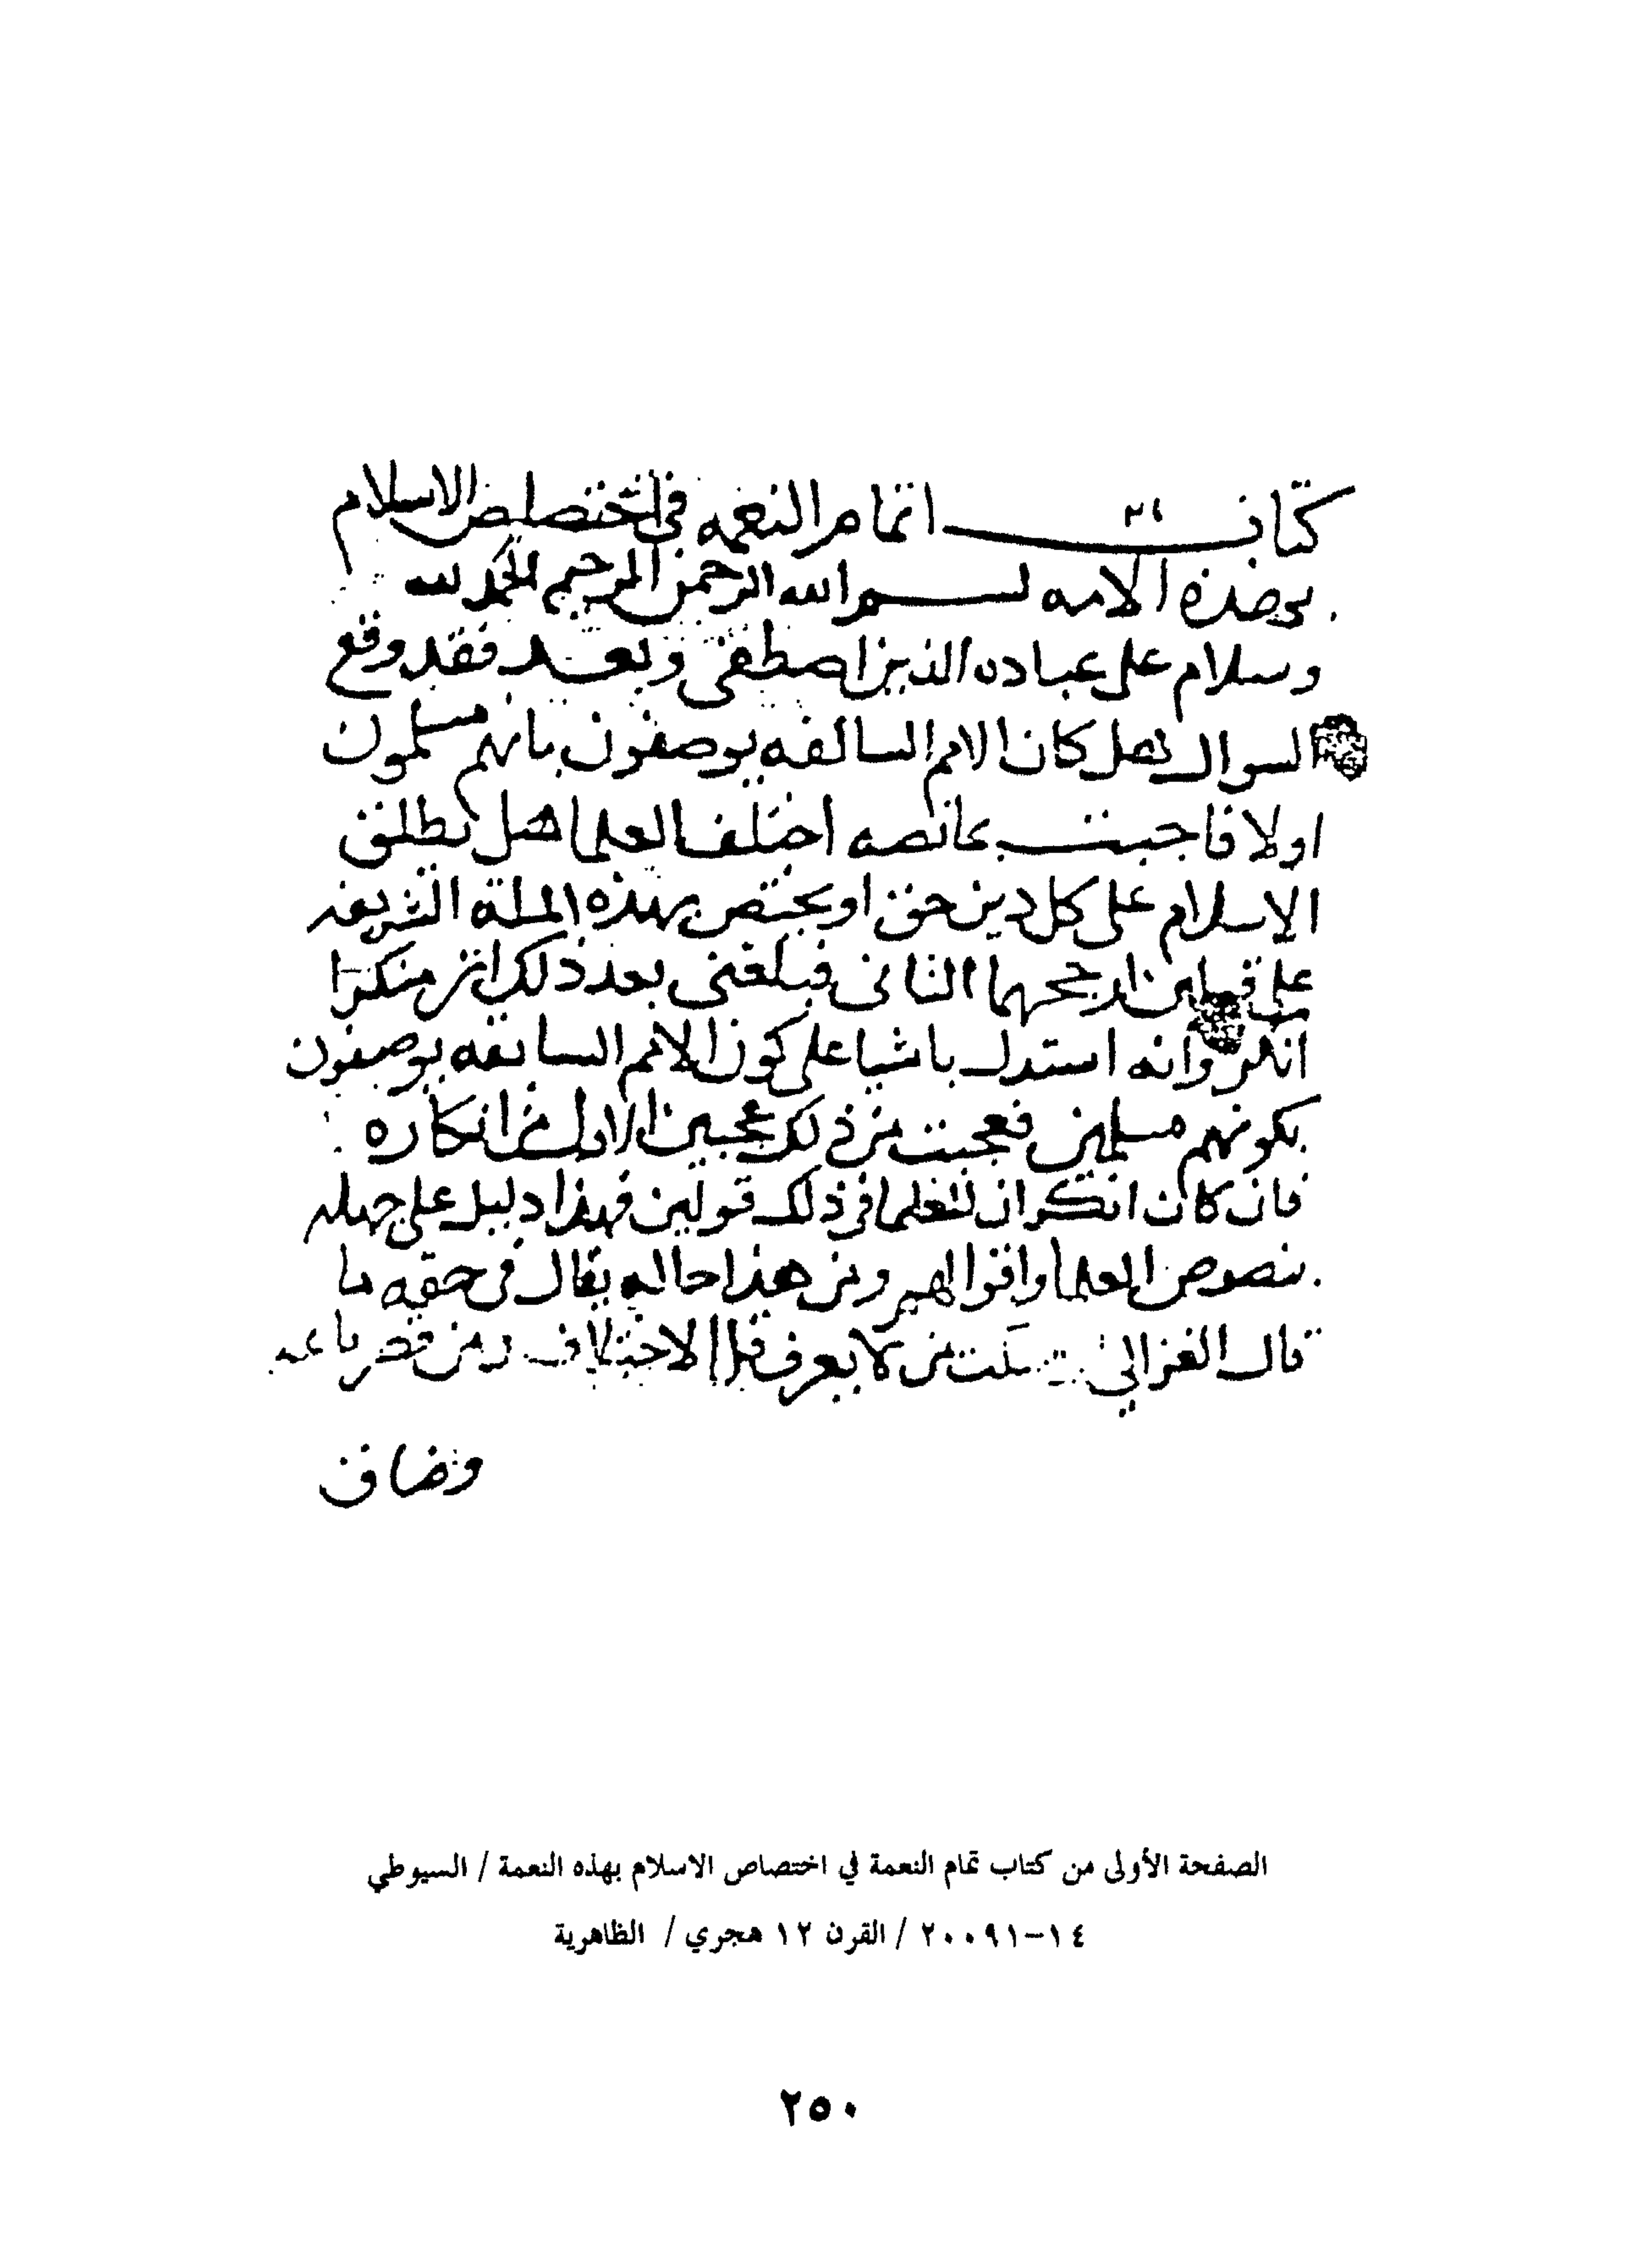 كتاب اتمام النعمه في اختصاص الاسلام
بهذه الامه بسم الله الرحمن الرحيم الحمد لله
وسلام على عباده الذين اصطفى وبعد فقد وقع
السوال هل كان الامم السالفه يوصفون بانهم مسلمون
اولا فاجبت بمانصه اختلف العلما هل يطلق
الاسلام على كل دين حق او يختص بهذه الملة الشريفه
على قولين ارجحهما الثانى فبلغنى بعد ذلك ان منكرا
انكر وانه استدل باشيا على كون الامم السابقه يوصفون
بكونهم مسلمين فعجبت من ذلك عجبين الاول من انكاره
فان كان انكر ان للعلما في ذلك قولين فهذا دليل على جهله
بنصوص العلما واقوالهم ومن هذا حاله يقال فى حقه ما
قال الغزالي من لا يعرف الاختلاف ومن قصر باعه
وضاق
الصفحة الأولى من كتاب تمام النعمة في اختصاص الاسلام بهذه النعمة / السيوطي
١٤-٢٠٠٩١ / القرن ١٢ هجري / الظاهرية
٢٥٠